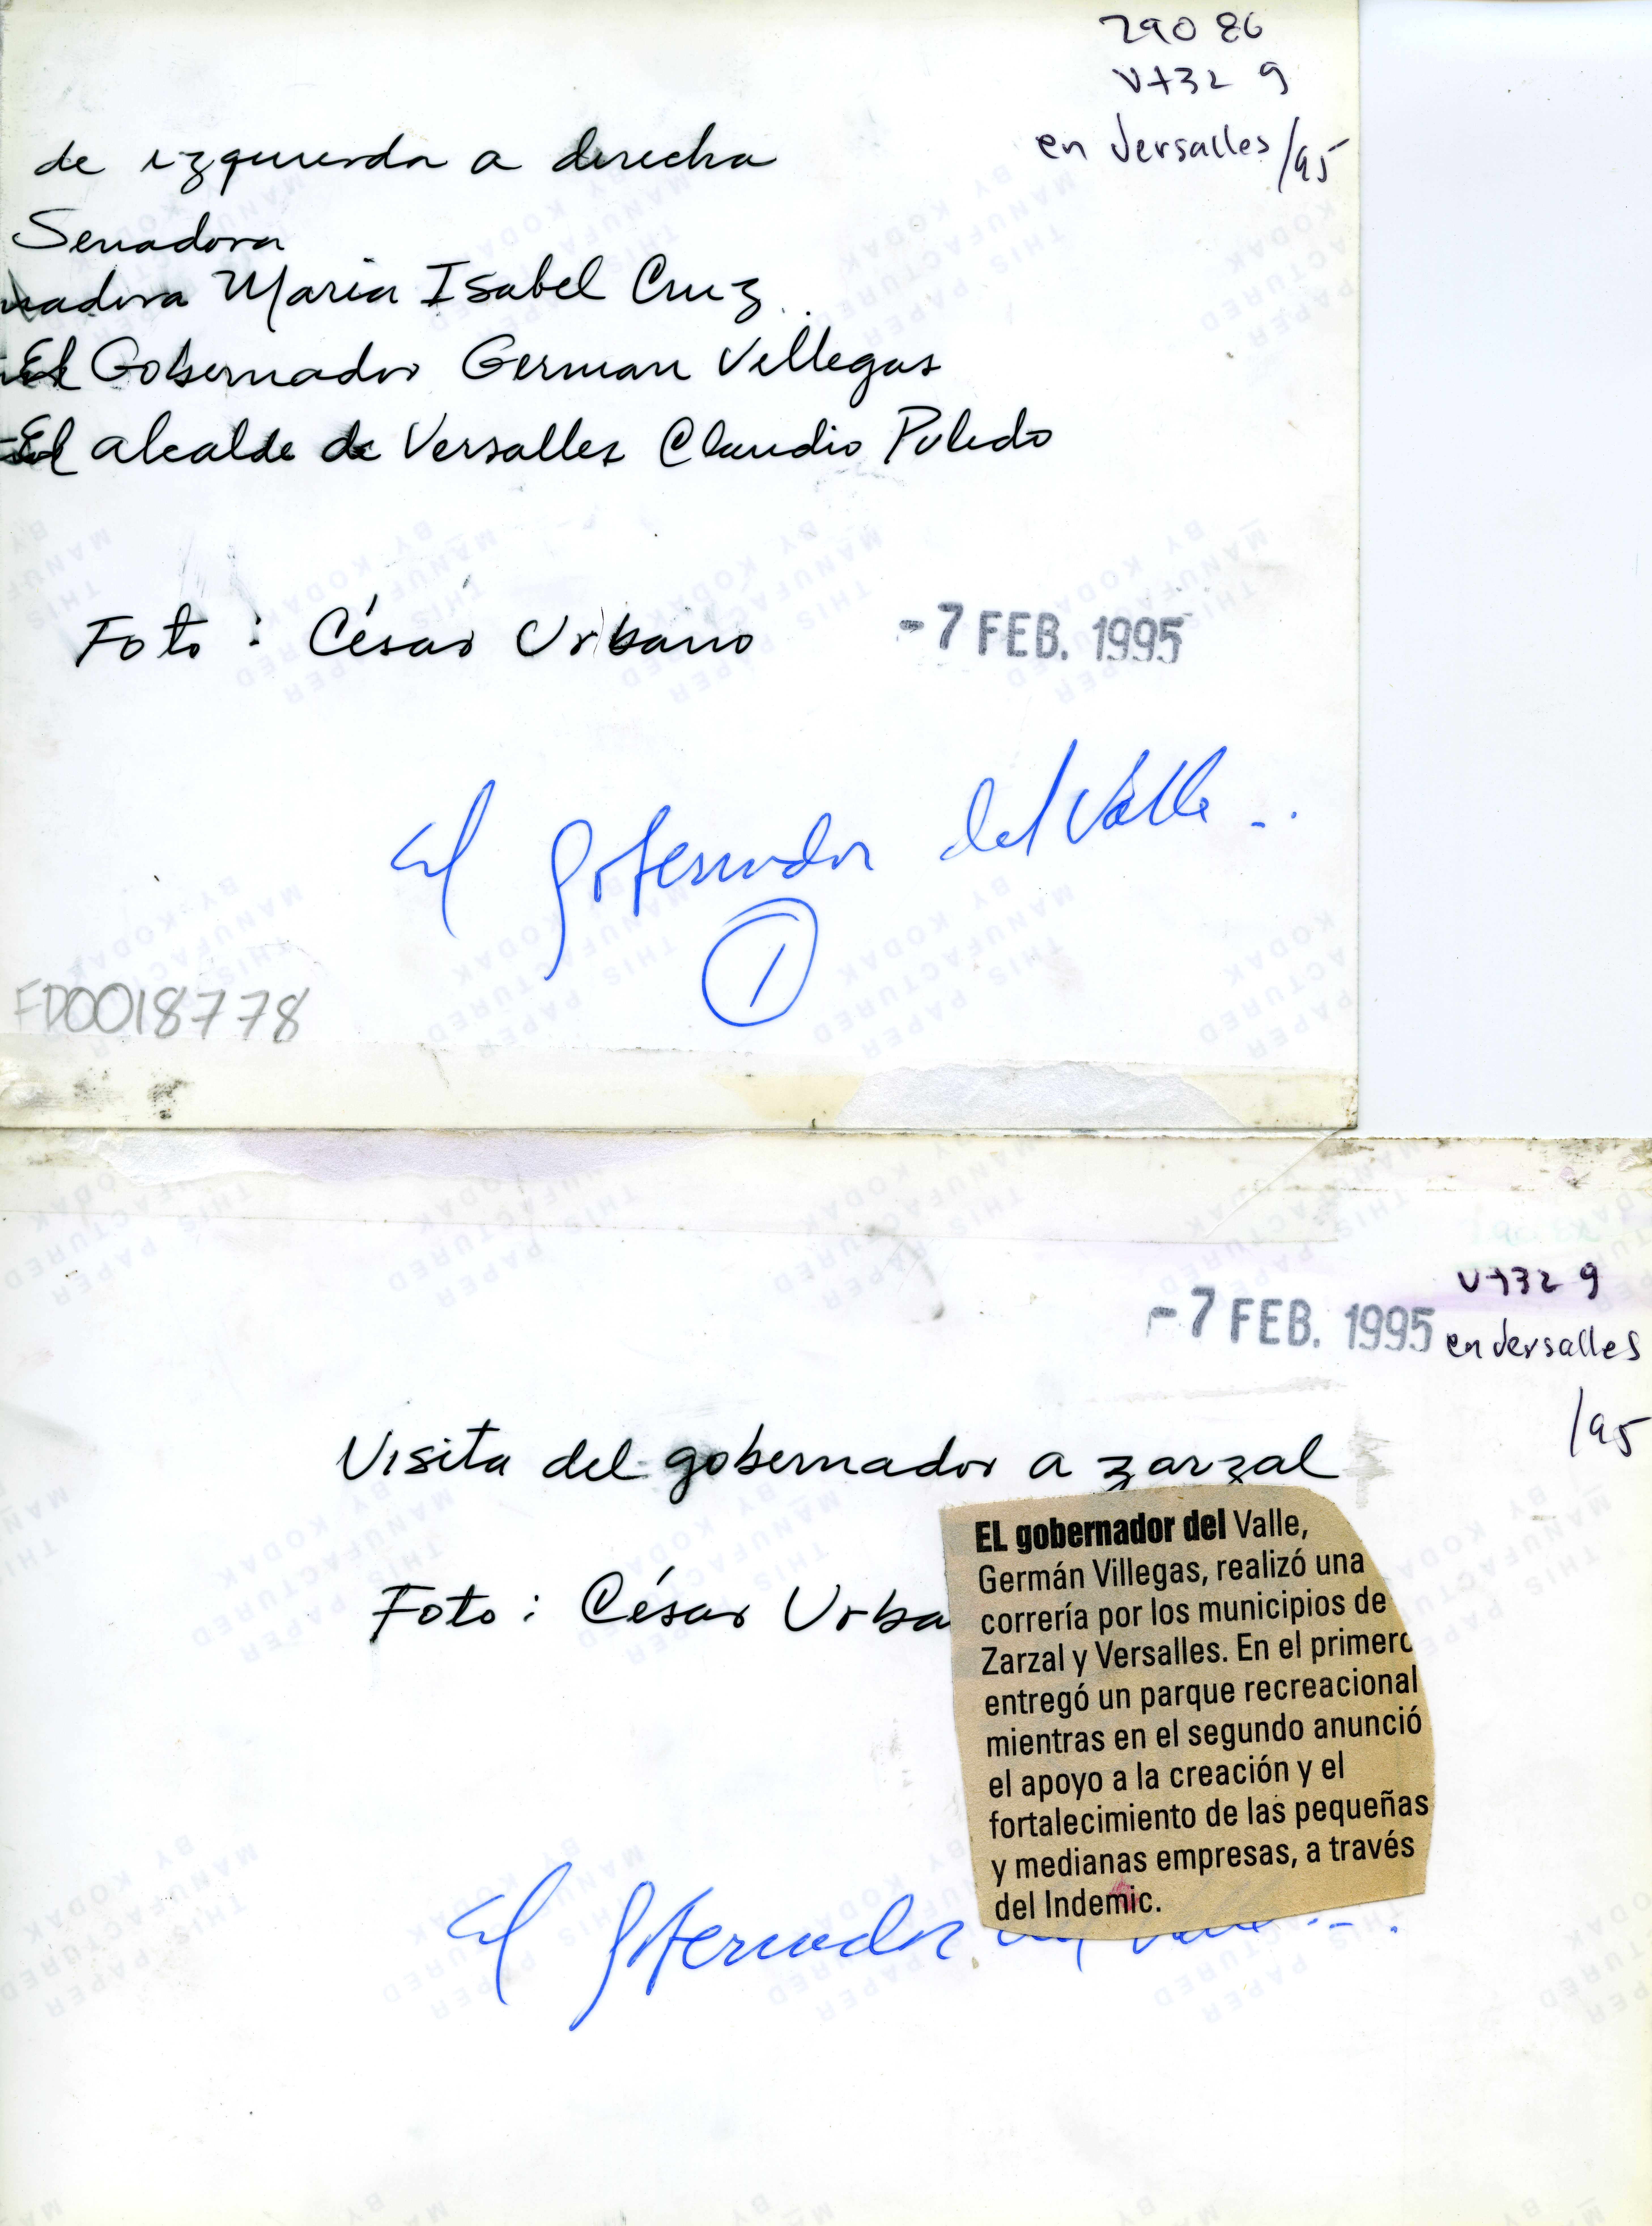 29086
V732 9
en Versalles /95
de izquierda a derecha
Senadora
nadora Maria Isabel Cruz
El Gobernador German Villegas
El alcalde de Versalles Claudio Pulido
Foto : César Urbano
-7 FEB. 1995
El gobernador del Valle ..
1
FD0018778
V732 9
-7 FEB. 1995
en Versalles
/95
Visita del gobernador a zarzal
Foto : César Urba
EL gobernador del Valle,
Germán Villegas, realizó una
correría por los municipios de
Zarzal y Versalles. En el primero
entregó un parque recreacional
mientras en el segundo anunció
el apoyo a la creación y el
fortalecimiento de las pequeñas
y medianas empresas, a través
del Indemic.
El gobernador del Valle ...
THIS PAPER
MANUFACTURED
BY KODAK